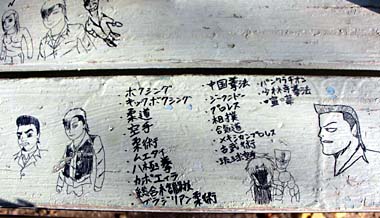 ・ボクシング
・キックボクシング
・柔道
・空手
・柔術
・ムエタイ
・八極拳
・カポエイラ
・総合格闘技
・ブラジリアン柔術
・中国拳法
・ジークンドー
・プロレス
・相撲
・合気道
・メキシカンプロレス
・古武術
・琉球空手
・パンクラチオン
・少林寺拳法
・喧嘩